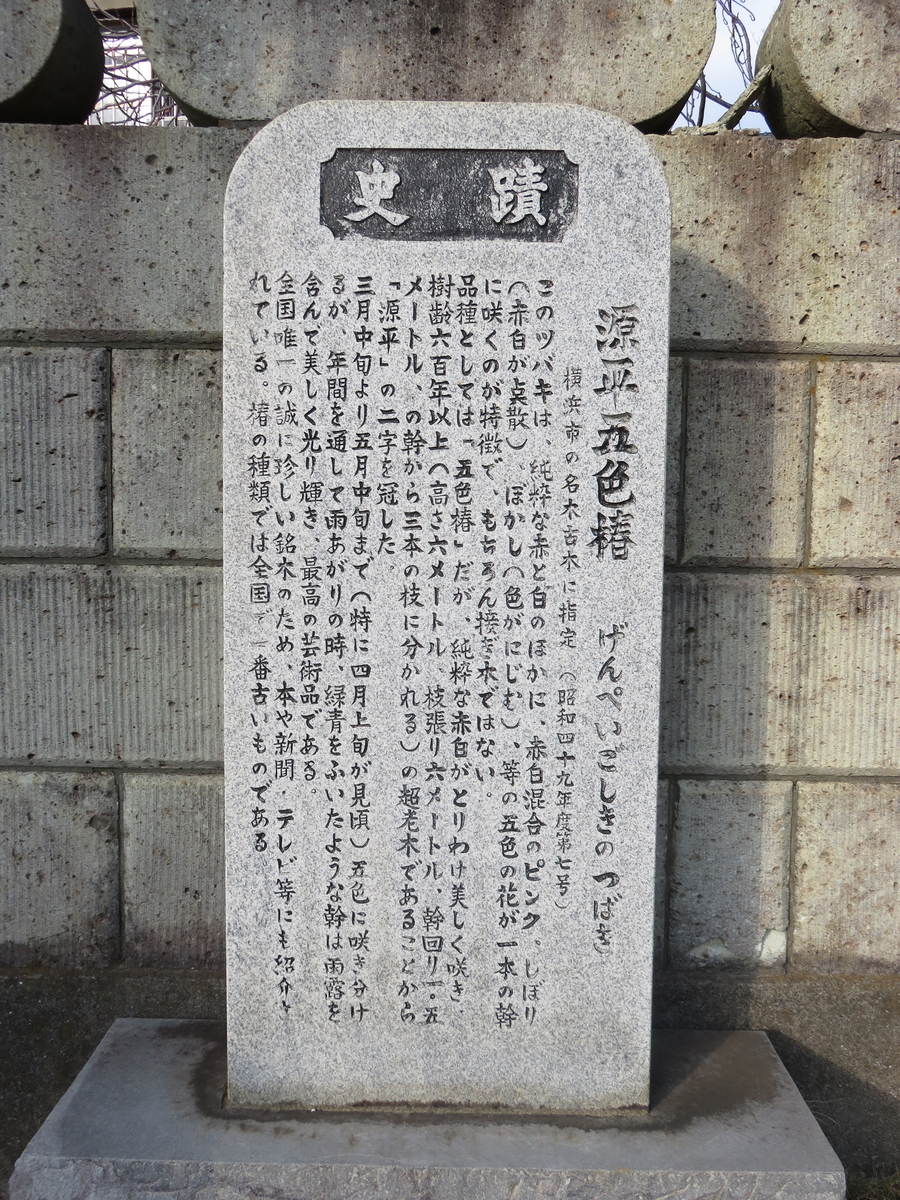 史蹟
源平五色椿 げんぺいごしきのつばき
横浜市の名木古木に指定（昭和四十九年度第七号）
このツバキは、純粋な赤と白のほかに、赤白混合のピンク、しぼり
（赤白が点散）、ぼかし（色がにじむ）、等の五色の花が一本の幹
に咲くのが特徴で、もちろん接ぎ木ではない。
品種としては「五色椿」だが、純粋な赤白がとりわけ美しく咲き、
樹齢六百年以上（高さ六メートル、枝張り六メートル、幹回り一・五
メートル、の幹から三本の枝に分かれる）の超老木であることから
「源平」の二字を冠した。
三月中旬より五月中旬まで（特に四月上旬が見頃）五色に咲き分け
るが、年間を通して雨あがりの時、緑青をふいたような幹は雨露を
含んで美しく光り輝き、最高の芸術品である。
全国唯一の誠に珍しい銘木のため、本や新聞・テレビ等にも紹介さ
れている。椿の種類では全国で一番古いものである。